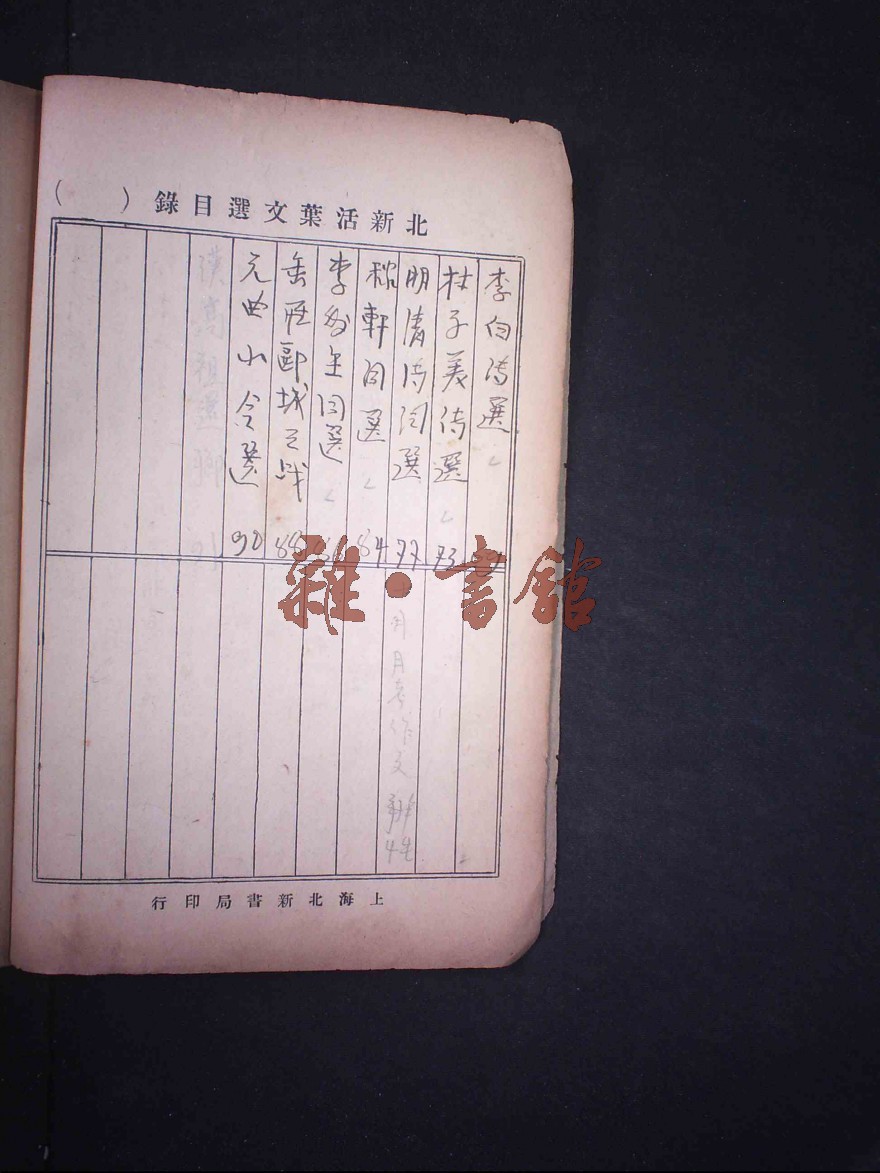 北新活葉文選目錄（　　）
李白詩選
杜子美詩選 73
明清詩詞選 77
稼軒詞選 84
李後主詞選
垓下鄙城之戰 88
元曲小令選 90
漢高祖選聊 91
月考作文
上海北新書局印行
雜·書館